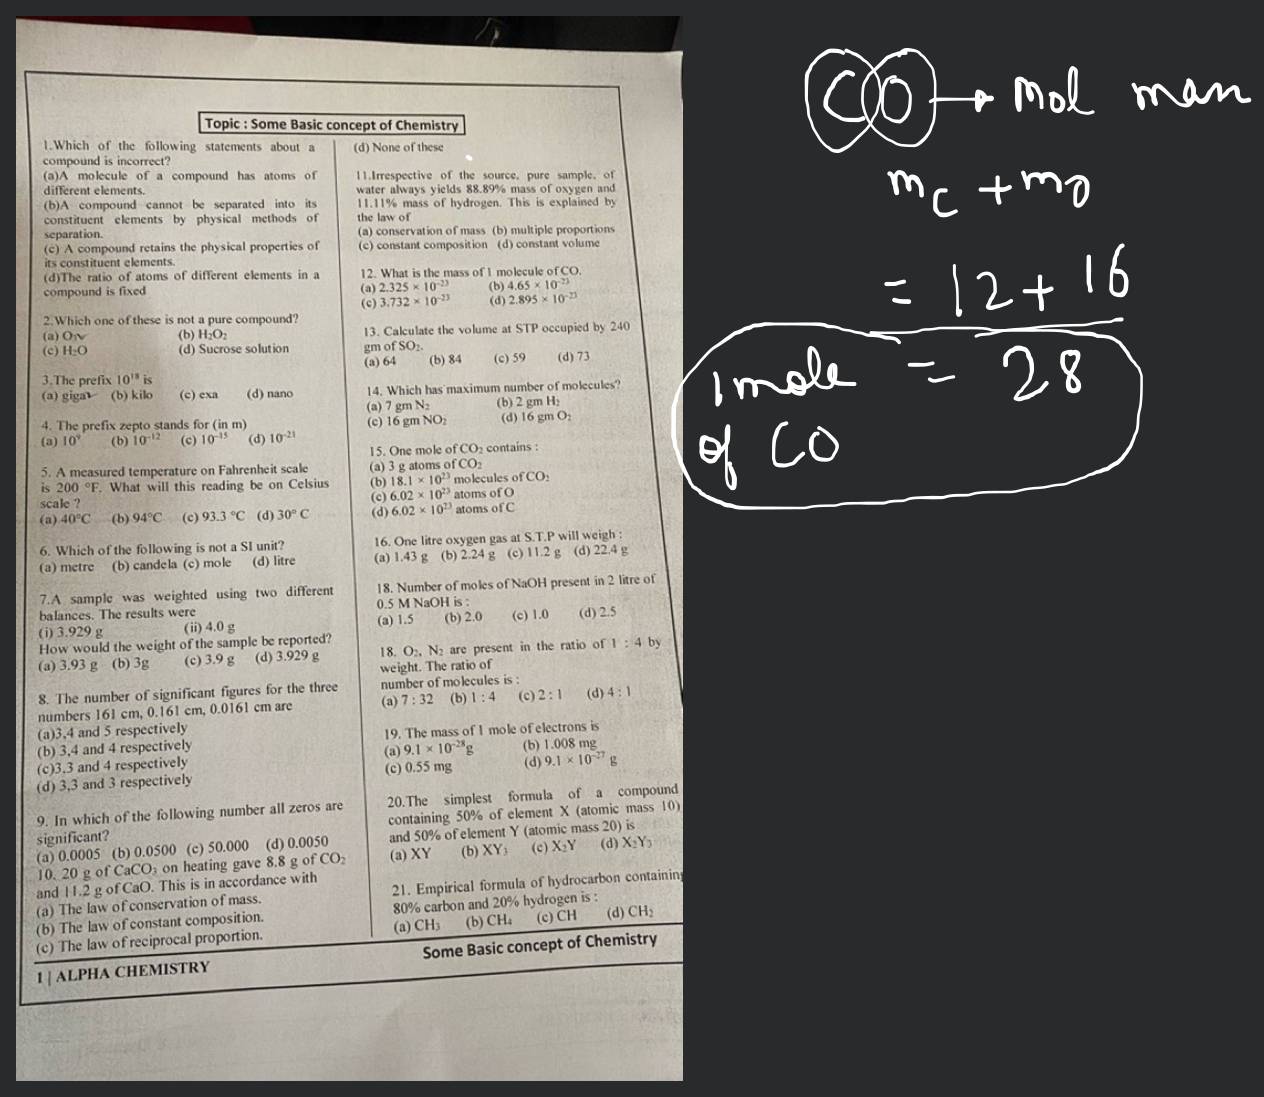 Topic : Some Basic concept of Chemistry
1.Which of the following statements about a
compound is incorrect?
(a)A molecule of a compound has atoms of
different elements.
(b)A compound cannot be separated into its
constituent elements by physical methods of
separation.
(c) A compound retains the physical properties of
its constituent elements.
(d)The ratio of atoms of different elements in a
compound is fixed
2.Which one of these is not a pure compound?
(a) O₃ (b) H₂O₂
(c) H₂O (d) Sucrose solution
3.The prefix 10¹⁸ is
(a) giga (b) kilo (c) exa (d) nano
4. The prefix zepto stands for (in m)
(a) 10⁹ (b) 10⁻¹² (c) 10⁻¹⁵ (d) 10⁻²¹
5. A measured temperature on Fahrenheit scale
is 200 °F. What will this reading be on Celsius
scale ?
(a) 40°C (b) 94°C (c) 93.3 °C (d) 30° C
6. Which of the following is not a SI unit?
(a) metre (b) candela (c) mole (d) litre
7.A sample was weighted using two different
balances. The results were
(i) 3.929 g (ii) 4.0 g
How would the weight of the sample be reported?
(a) 3.93 g (b) 3g (c) 3.9 g (d) 3.929 g
8. The number of significant figures for the three
numbers 161 cm, 0.161 cm, 0.0161 cm are
(a)3,4 and 5 respectively
(b) 3,4 and 4 respectively
(c)3,3 and 4 respectively
(d) 3,3 and 3 respectively
9. In which of the following number all zeros are
significant?
(a) 0.0005 (b) 0.0500 (c) 50.000 (d) 0.0050
10. 20 g of CaCO₃ on heating gave 8.8 g of CO₂
and 11.2 g of CaO. This is in accordance with
(a) The law of conservation of mass.
(b) The law of constant composition.
(c) The law of reciprocal proportion.
(d) None of these
11.Irrespective of the source, pure sample, of
water always yields 88.89% mass of oxygen and
11.11% mass of hydrogen. This is explained by
the law of
(a) conservation of mass (b) multiple proportions
(c) constant composition (d) constant volume
12. What is the mass of 1 molecule of CO.
(a) 2.325 × 10⁻²³ (b) 4.65 × 10⁻²³
(c) 3.732 × 10⁻²³ (d) 2.895 × 10⁻²³
13. Calculate the volume at STP occupied by 240
gm of SO₂.
(a) 64 (b) 84 (c) 59 (d) 73
14. Which has maximum number of molecules?
(a) 7 gm N₂ (b) 2 gm H₂
(c) 16 gm NO₂ (d) 16 gm O₂
15. One mole of CO₂ contains :
(a) 3 g atoms of CO₂
(b) 18.1 × 10²³ molecules of CO₂
(c) 6.02 × 10²³ atoms of O
(d) 6.02 × 10²³ atoms of C
16. One litre oxygen gas at S.T.P will weigh :
(a) 1.43 g (b) 2.24 g (c) 11.2 g (d) 22.4 g
18. Number of moles of NaOH present in 2 litre of
0.5 M NaOH is :
(a) 1.5 (b) 2.0 (c) 1.0 (d) 2.5
18. O₂, N₂ are present in the ratio of 1 : 4 by
weight. The ratio of
number of molecules is :
(a) 7 : 32 (b) 1 : 4 (c) 2 : 1 (d) 4 : 1
19. The mass of 1 mole of electrons is
(a) 9.1 × 10⁻²⁸g (b) 1.008 mg
(c) 0.55 mg (d) 9.1 × 10⁻²⁷ g
20.The simplest formula of a compound
containing 50% of element X (atomic mass 10)
and 50% of element Y (atomic mass 20) is
(a) XY (b) XY₃ (c) X₂Y (d) X₂Y₃
21. Empirical formula of hydrocarbon containing
80% carbon and 20% hydrogen is :
(a) CH₃ (b) CH₄ (c) CH (d) CH₂
Some Basic concept of Chemistry
1 | ALPHA CHEMISTRY
CO → mol mass
mC + mO
= 12 + 16
1 mole = 28
of CO